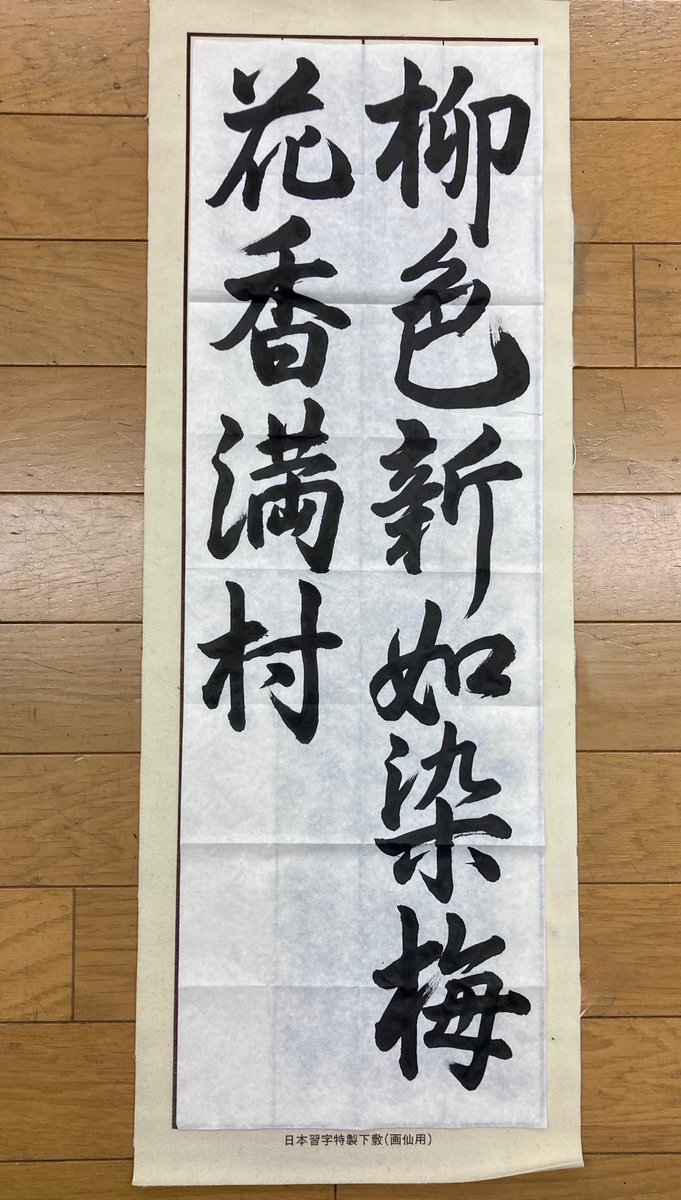 柳色新如染梅
花香満村
日本習字特製下敷(画仙用)